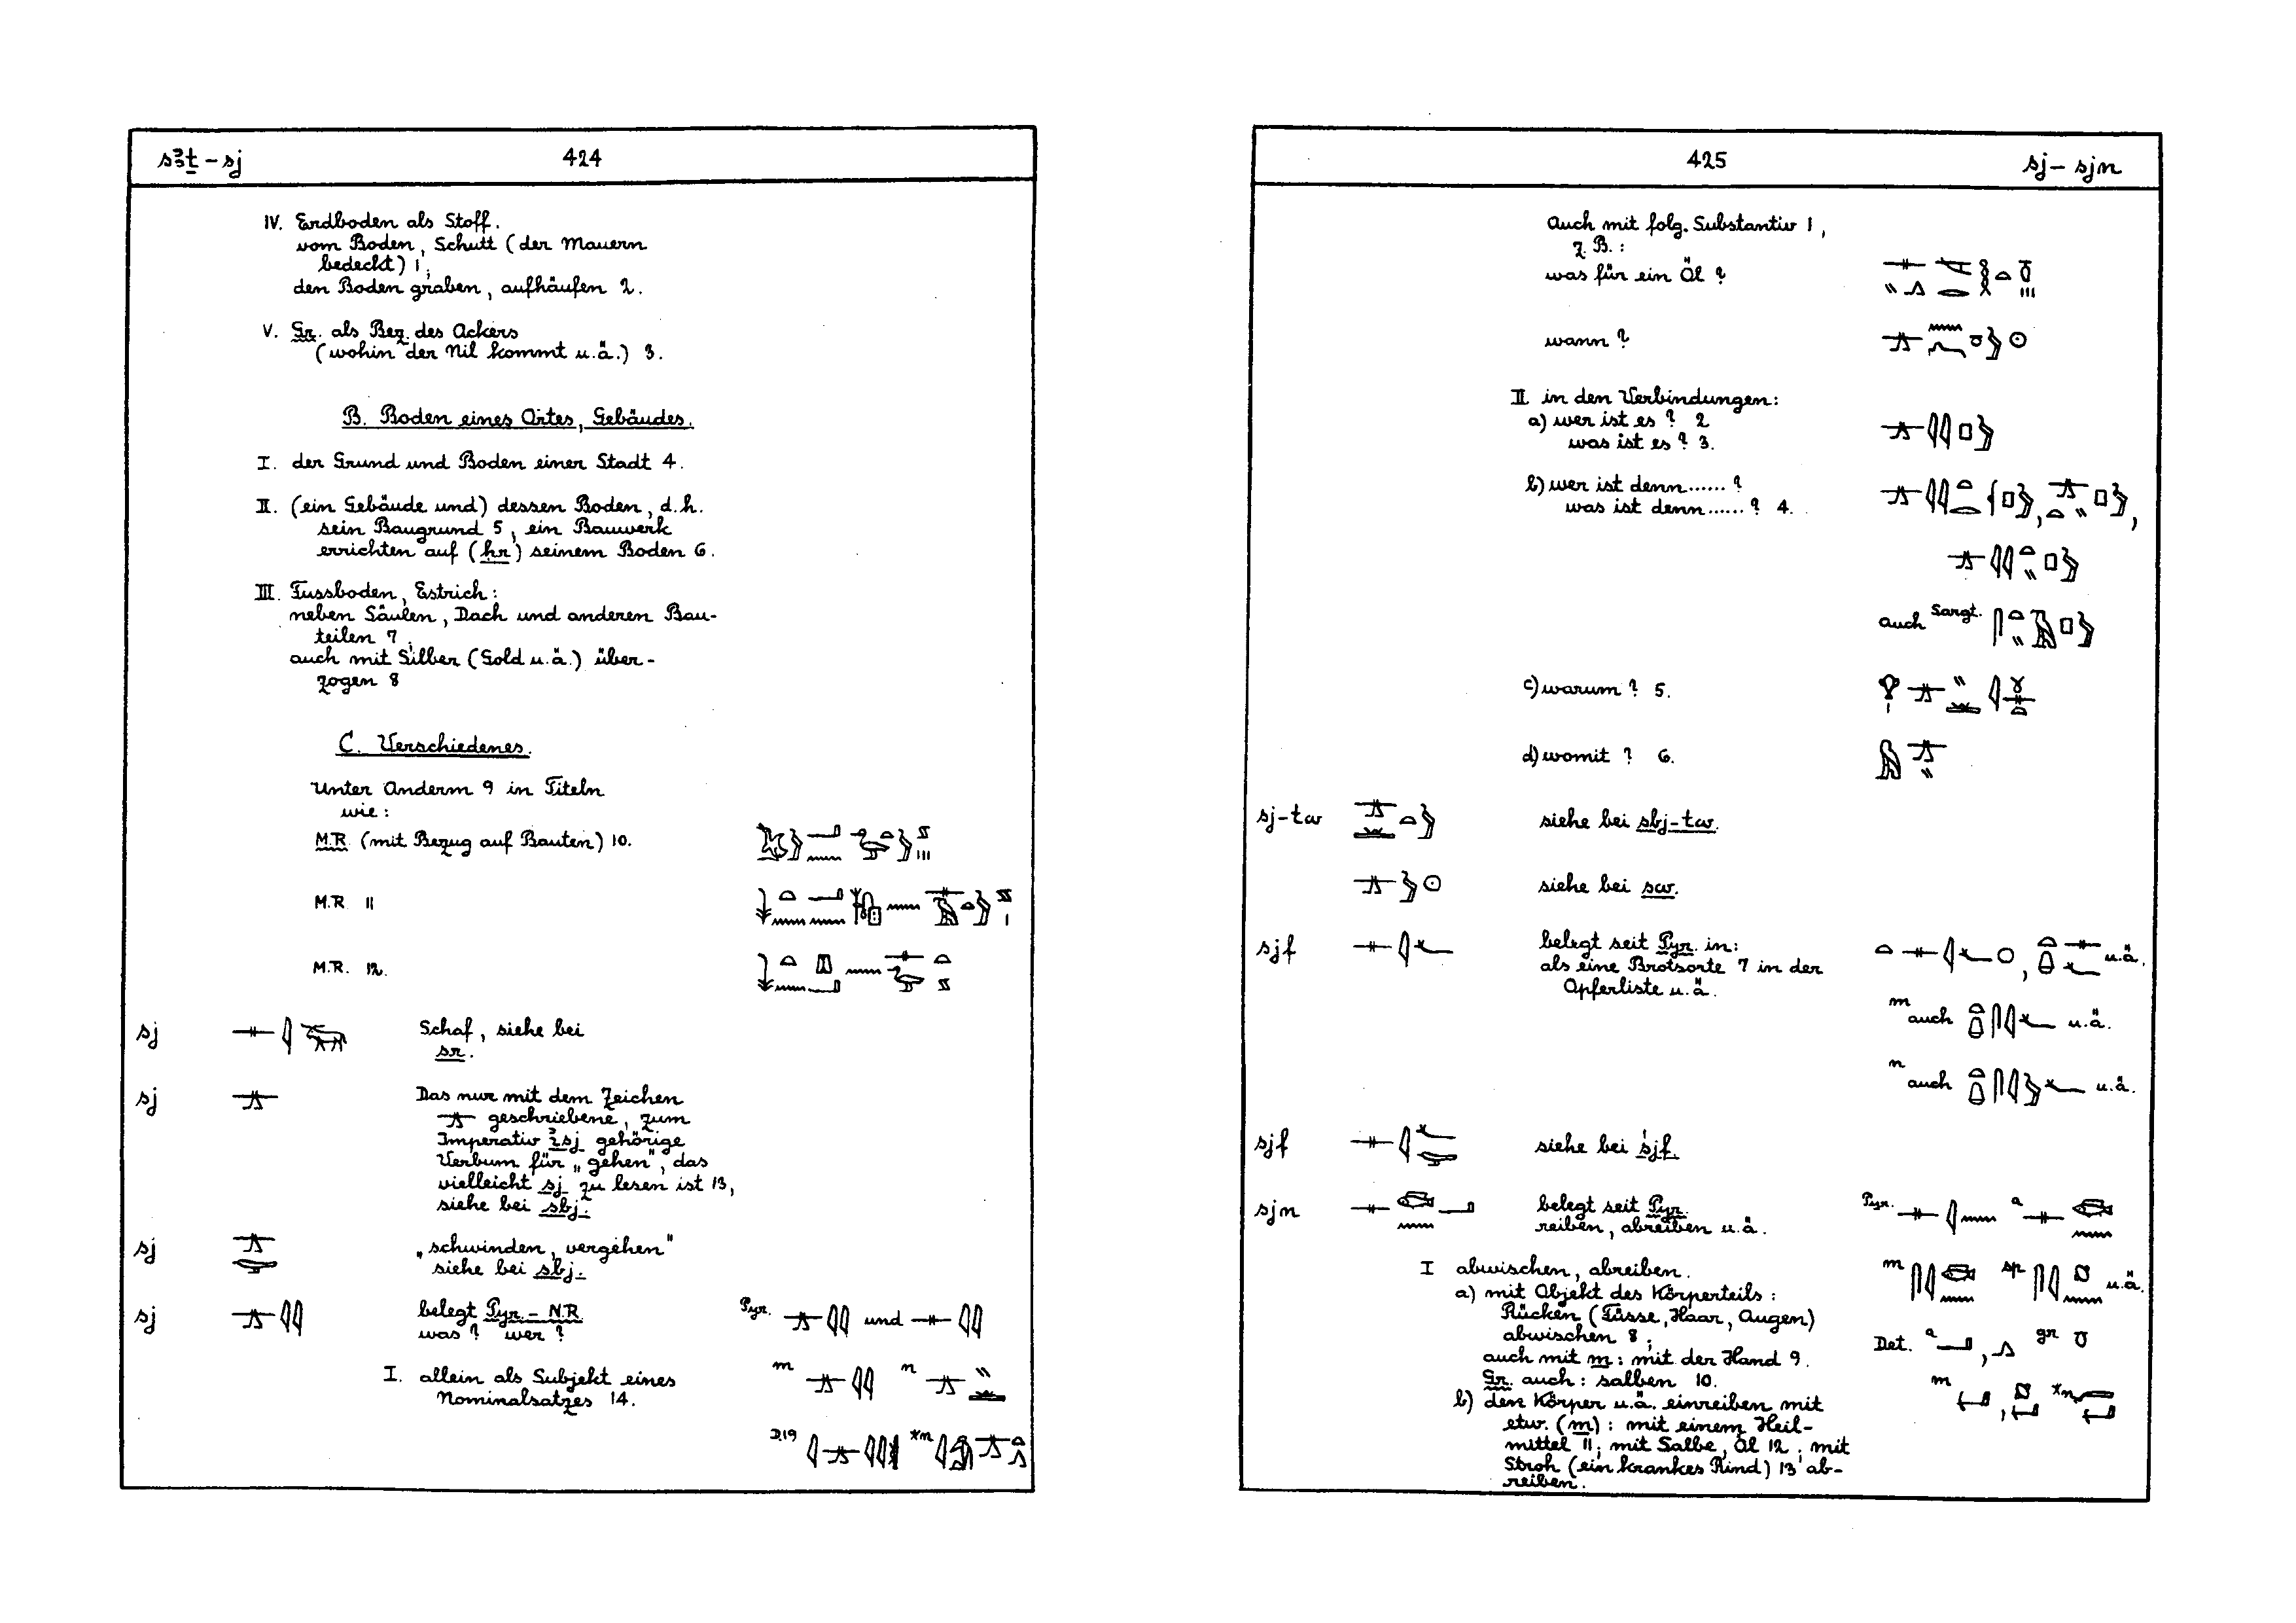 sꜣṯ – sj 424
IV. Erdboden als Stoff.
vom Boden, Schutt (der Mauern
bedeckt) 1;
den Boden graben, aufhäufen 2.
V. Gr. als Bez. des Ackers
(wohin der Nil kommt u.ä.) 3.
B. Boden eines Ortes, Gebäudes.
I. der Grund und Boden einer Stadt 4.
II. (ein Gebäude und) dessen Boden, d.h.
sein Baugrund 5, ein Bauwerk
errichten auf (ḥr) seinem Boden 6.
III. Fussboden, Estrich:
neben Säulen, Dach und anderen Bau-
teilen 7;
auch mit Silber (Gold u.ä.) über-
zogen 8
C. Verschiedenes.
Unter Anderm 9 in Titeln
wie:
M.R. (mit Bezug auf Bauten) 10.
M.R. 11
M.R. 12.
sj Schaf, siehe bei
sr.
sj Das nur mit dem Zeichen
geschriebene, zum
Imperativ ꞽꜣsj gehörige
Verbum für „gehen“, das
vielleicht sj zu lesen ist 13,
siehe bei sbj.
sj „schwinden, vergehen“
siehe bei sbj.
sj belegt Pyr. – N.R. Pyr. und
was? wer?
I. allein als Subjekt eines m n
Nominalsatzes 14.
D.19 *n
425 sj – sjn
Auch mit folg. Substantiv 1,
z.B.:
was für ein Öl?
wann?
II in den Verbindungen:
a) wer ist es? 2
was ist es? 3.
b) wer ist denn......?
was ist denn......? 4.
auch Sargt.
c) warum? 5.
d) womit? 6.
sj-tw siehe bei sbj-tw.
siehe bei sw.
sjf belegt seit Pyr. in: u.ä.
als eine Brotsorte 7 in der
Opferliste u.ä.
m auch u.ä.
n auch u.ä.
sjf siehe bei śjf.
sjn belegt seit Pyr. Pyr. a
reiben, abreiben u.ä.
I abwischen, abreiben. m sp u.ä.
a) mit Objekt des Körperteils:
Rücken (Füsse, Haar, Augen)
abwischen 8; Det. a gr
auch mit m: mit der Hand 9.
Gr. auch: salben 10. m *n
b) den Körper u.ä. einreiben mit
etw. (m): mit einem Heil-
mittel 11; mit Salbe, Öl 12; mit
Stroh (ein krankes Rind) 13 ab-
reiben.